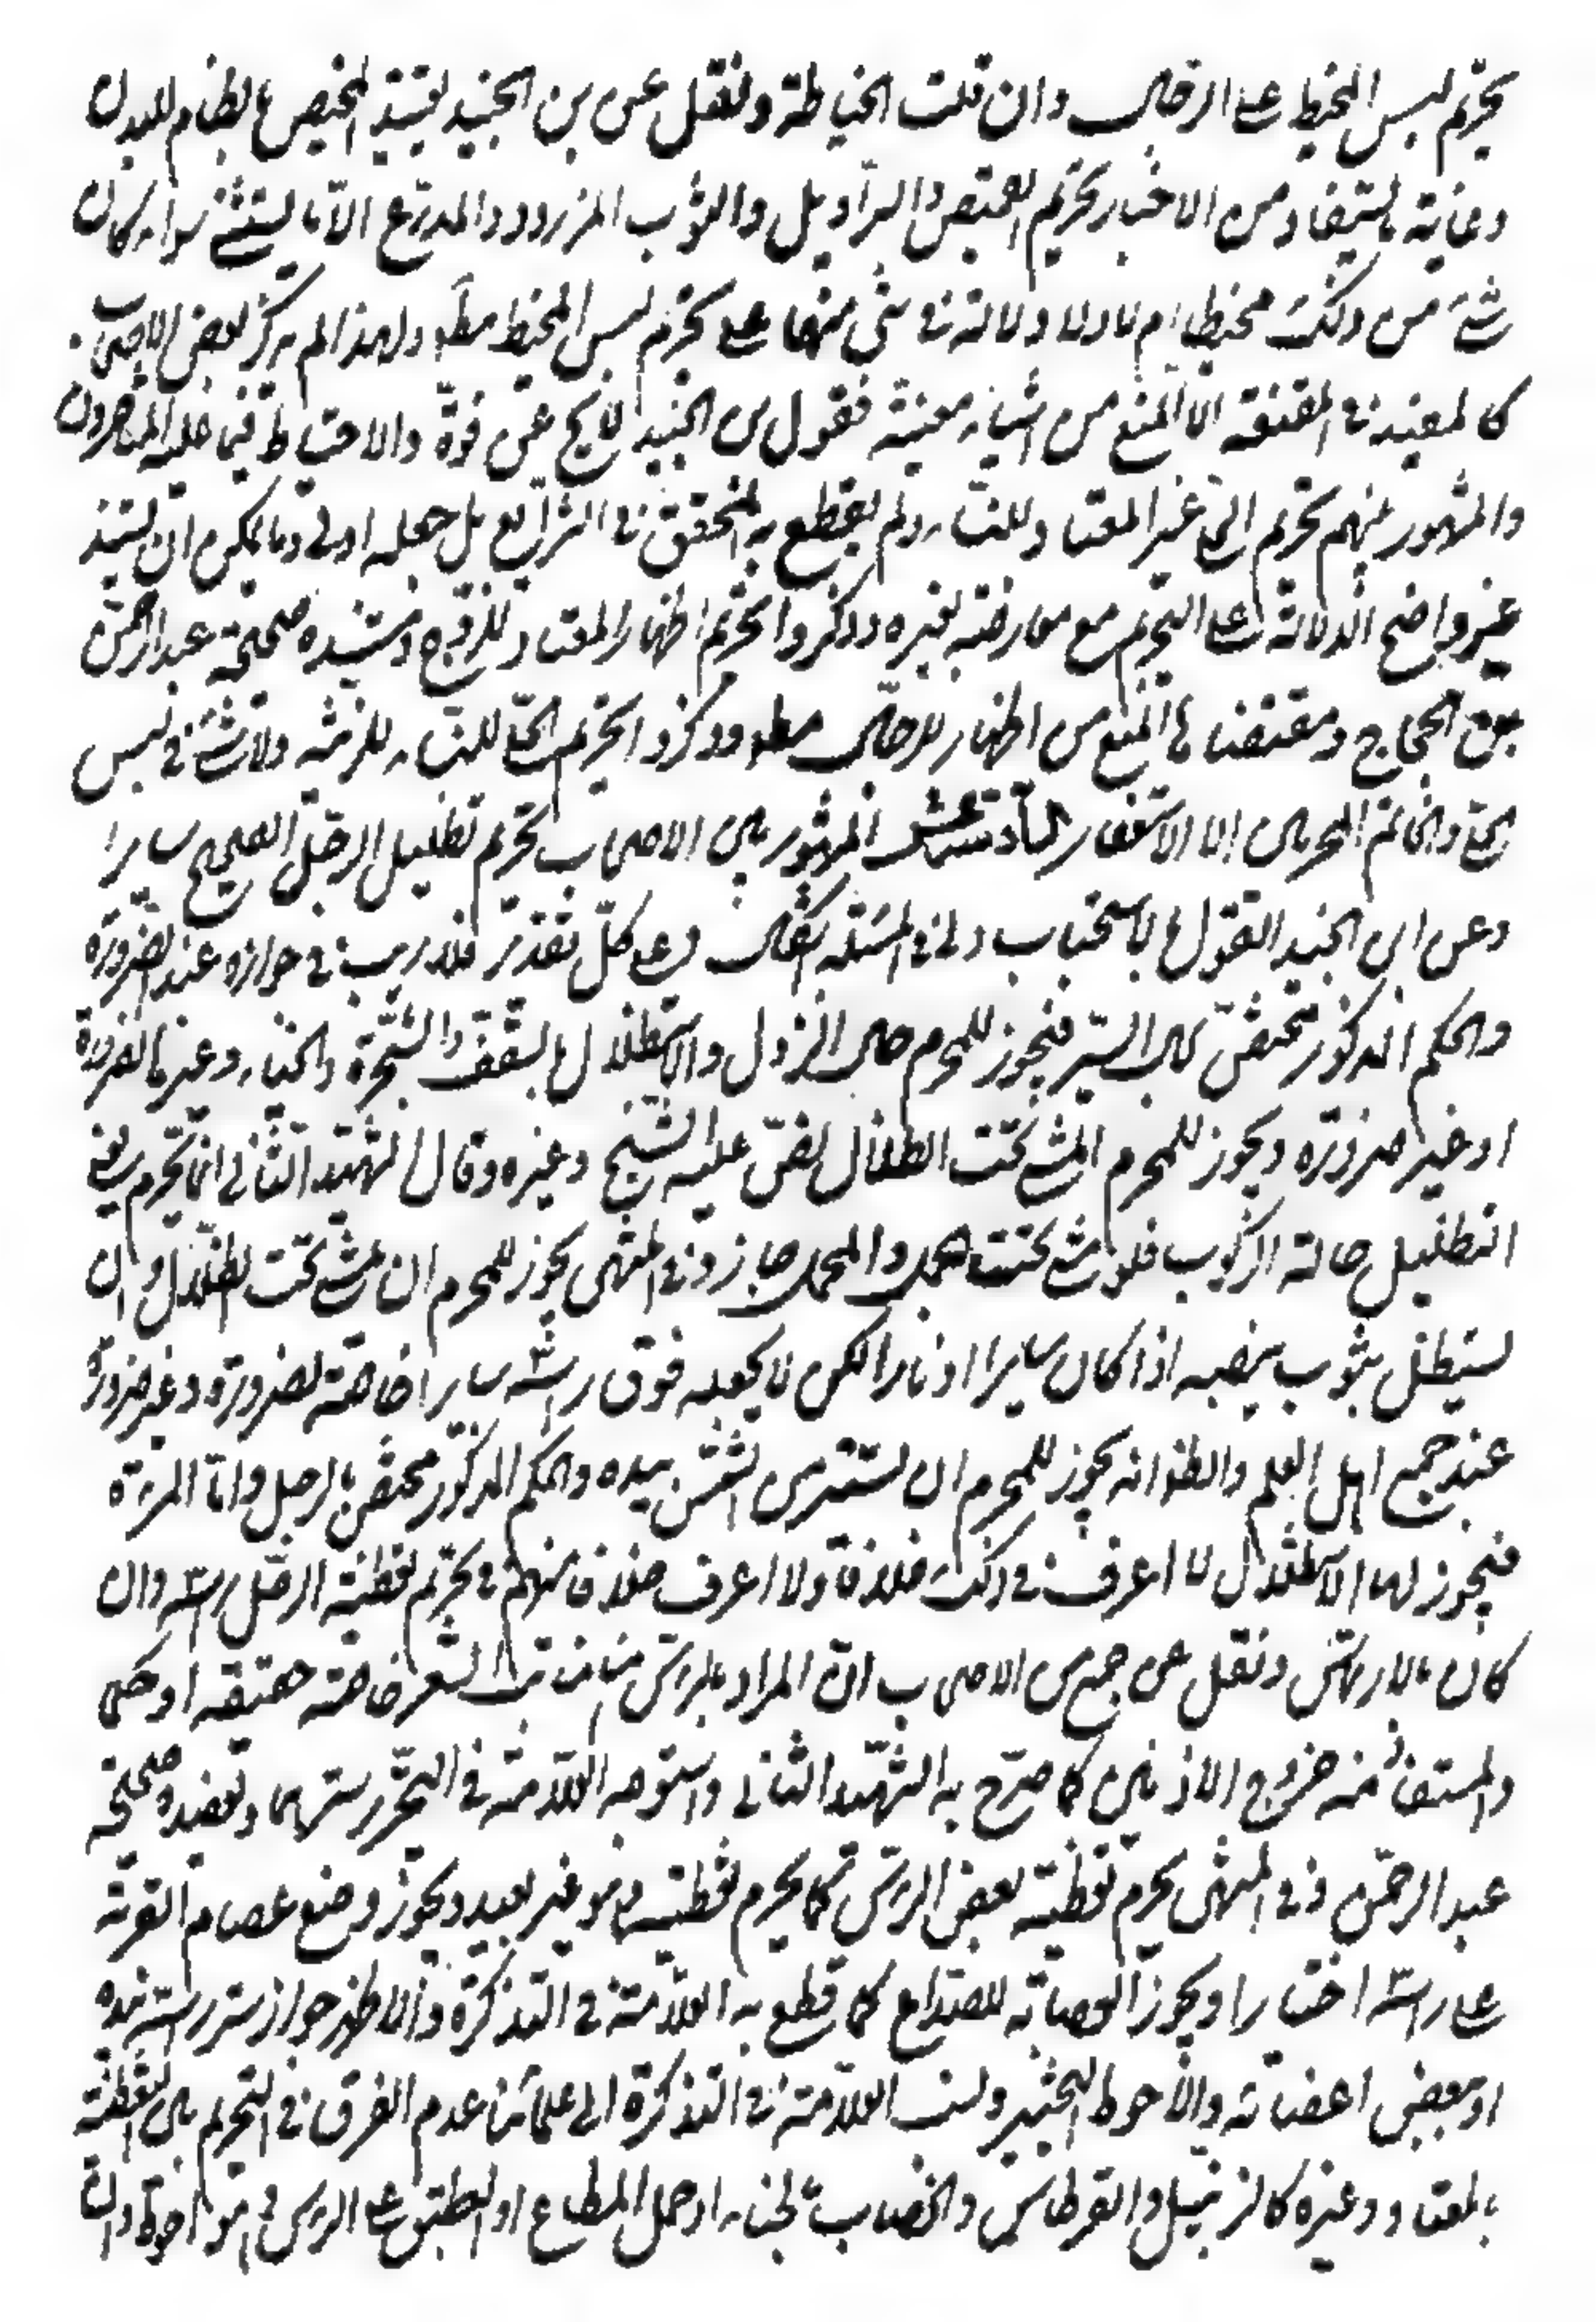 يحرم لبس المخيط على الرجال وان قلت الخياطة ونقل عن بن الجنيد تقييد المخيط بالضام للبدن
وغاية ما يستفاد من الاخبار تحريم القميص والسراويل والثوب المزرور والمدرع الا ما يستثنى سواء كان
شئ من ذلك مخيطا ام لا ولا دلالة في شئ منها على تحريم لبس المخيط مطلقا ولهذا لم يذكر بعض الاصحاب
كالمفيد في المقنعة الا المنع من اشياء معينة فقول بن الجنيد لا يخ عن قوة والاحتياط فيما عليه المتاخرون
والمشهور بينهم تحريم الحلي غير المعتاد للنساء ولم يقطع به المحقق في الشرايع بل جعله اولى وما يمكن ان يستند
غير واضح الدلالة على التحريم مع معارضته بغيره وذكروا تحريم اظهار المعتاد للزوج ومستنده صحيحة عبد الرحمن
بن الحجاج ومقتضاها المنع من اظهاره للرجال مطلقا وذكروا تحريم الحلي للنساء للزينة ولا شئ في لبس
الحلي والخاتم المحرمين الا الاستغفار السادس عشر المشهور بين الاصحاب تحريم تظليل الرجل الصحيح سايرا
وعن ابن الجنيد القول بالاستحباب ولي في المسئلة اشكال وعلى كل تقدير فلا ريب في جوازه عند الضرورة
والحكم المذكور مختص بحال السير فيجوز للمحرم حال النزول والاستظلال بالسقف والشجرة والخباء وغيرها لضرورة
او غير ضرورة ويجوز للمحرم المشي تحت الظلال نص عليه الشيخ وغيره وقال الشهيد الثاني انما يحرم يعني
التظليل حالة الركوب فلو مشى تحت الحمل والمحمل جاز وفي المنتهى يجوز للمحرم ان يمشي تحت الظلال وان
يستظل بثوب ينصبه اذا كان سايرا او نازلا لكن لا يجعله فوق راسه سايرا خاصة لضرورة وغير ضرورة
عند جميع اهل العلم والظ انه يجوز للمحرم ان يستتر من الشمس بيده والحكم المذكور مختص بالرجل واما المرءة
فيجوز لها الاستظلال لا اعرف في ذلك خلافا ولا اعرف خلافا بينهم في تحريم تغطية الرجل راسه وان
كان بالارتماس ونقل عن جمع من الاصحاب ان المراد بالراس هنا منابت الشعر خاصة حقيقة او حكما
والمستفاد منه خروج الاذنين كما صرح به الشهيد الثاني واستوجه العلامة في التحرير سترهما وتعضده صحيحة
عبد الرحمن وفي المنتهى يحرم تغطية بعض الراس كما يحرم تغطيته وهو غير بعيد ويجوز وضع عصام القربة
على راسه اختيارا ويجوز العصابة للصداع كما قطع به العلامة في التذكرة والاظهر جواز ستر راسه بيده
او ببعض اعضائه والاحوط التجنب ونسب العلامة في التذكرة الى علمائنا عدم الفرق في التحريم بين التغطية
بالمعتاد وغيره كالزنبيل والقرطاس والخضاب بالحناء وحمل المطاع او الطبق على الراس وهو احوط